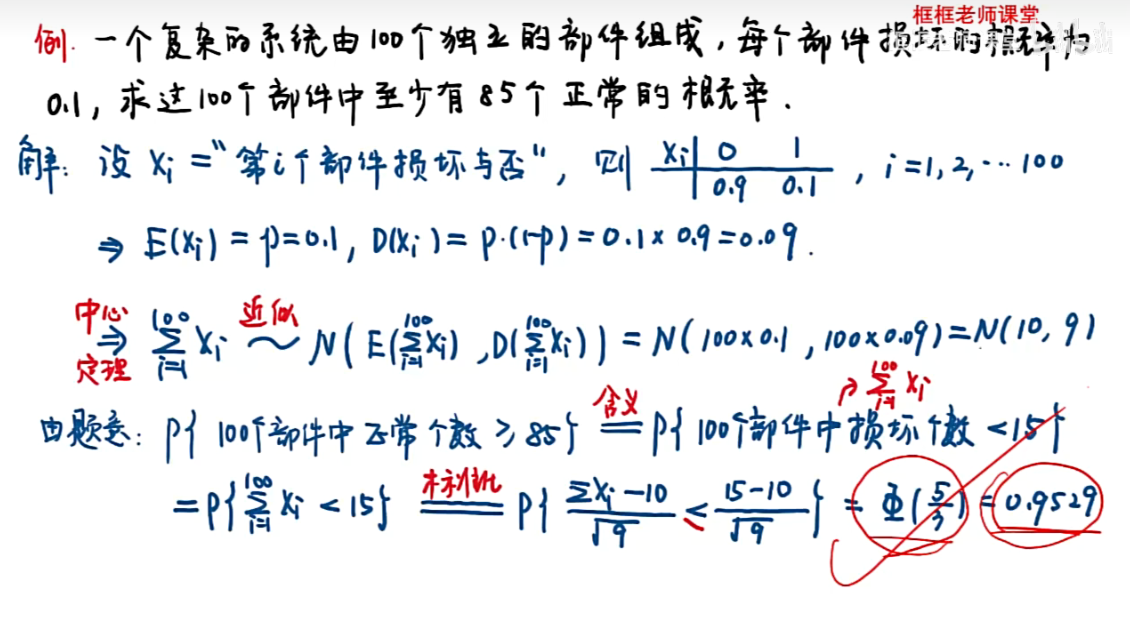 框框老师课堂
例. 一个复杂的系统由100个独立的部件组成,每个部件损坏的概率为
0.1,求这100个部件中至少有85个正常的概率.
解: 设 Xi="第i个部件损坏与否", 则 Xi | 0 1 , i=1,2,…100
0.9 0.1
⇒ E(Xi)=p=0.1, D(Xi)=p·(1-p)=0.1×0.9=0.09.
中心定理 ⇒ ∑_{i=1}^{100} Xi 近似 ~ N(E(∑_{i=1}^{100}Xi),D(∑_{i=1}^{100}Xi))=N(100×0.1,100×0.09)=N(10,9)
↗ ∑_{i=1}^{100} Xi
由题意: P{100个部件中正常个数≥85} 含义 = P{100个部件中损坏个数<15}
=P{∑_{i=1}^{100} Xi<15} 标准化 = P{(∑Xi-10)/√9 < (15-10)/√9} = Φ(5/3) = 0.9529